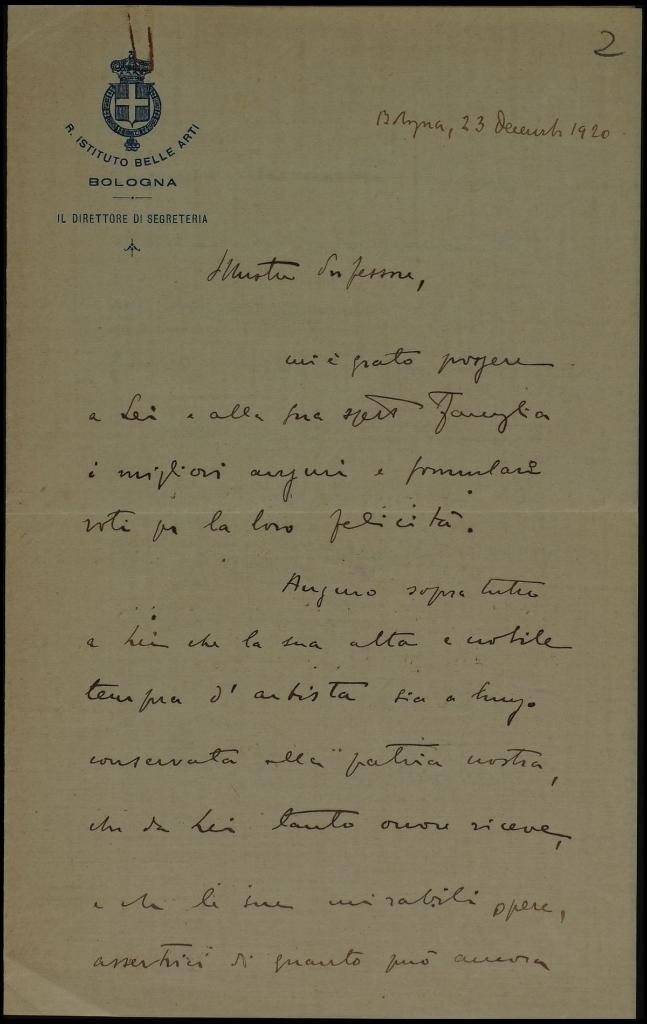 2
R. ISTITUTO BELLE ARTI
BOLOGNA
IL DIRETTORE DI SEGRETERIA
Bologna, 23 Decemb 1920
Illustre Professore,
mi è grato porgere
a Lei e alla sua spett Famiglia
i migliori auguri e formulare
voti per la loro felicità.
Auguro sopra tutto
a Lei che la sua alta e nobile
tempra d'artista sia a lungo
conservata alla patria nostra,
che da Lei tanto onore riceve,
e che le sue mirabili opere,
assertrici di quanto può ancora